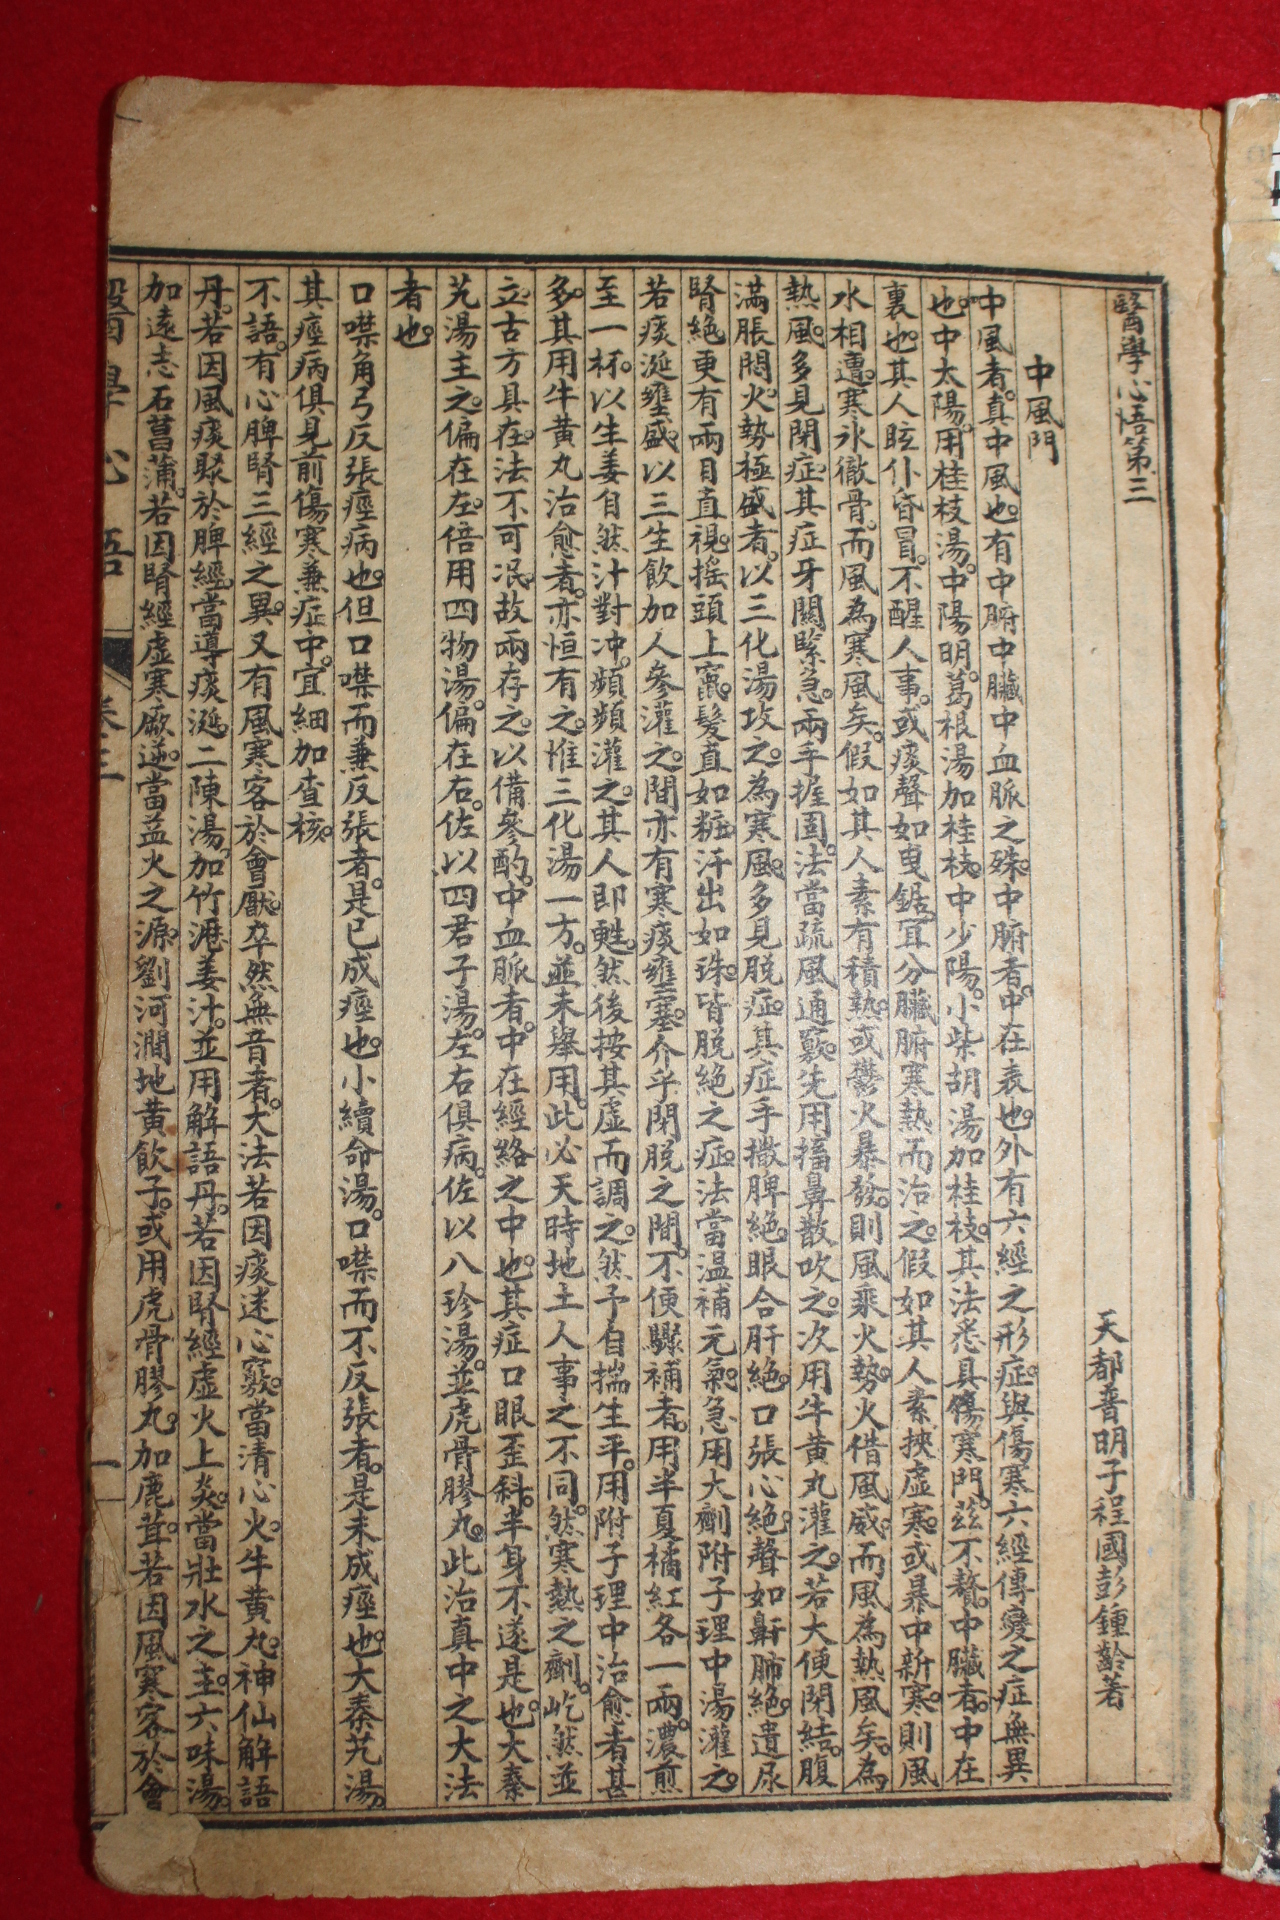 醫學心悟第三
天都普明子程國彭鍾齡著
中風門
中風者。真中風也。有中腑中臟中血脈之殊。中腑者。中在表也。外有六經之形症。與傷寒六經傳變之症無異
也。中太陽。用桂枝湯。中陽明。葛根湯加桂枝。中少陽。小柴胡湯加桂枝。其法悉具傷寒門。茲不贅。中臟者。中在
裏也。其人眩仆昏冒。不醒人事。或痰聲如曳鋸。宜分臟腑寒熱而治之。假如其人素挾虛寒。或暴中新寒。則風
水相遭。寒氷徹骨。而風為寒風矣。假如其人素有積熱。或鬱火暴發。則風乘火勢。火借風威。而風為熱風矣。為
熱風。多見閉症。其症牙關緊急。兩手握固。法當疏風通竅。先用搐鼻散吹之。次用牛黃丸灌之。若大便閉結。腹
滿脹悶。火勢極盛者。以三化湯攻之。為寒風。多見脫症。其症手撒脾絕。眼合肝絕。口張心絕。聲如鼾肺絕。遺尿
腎絕。更有兩目直視。搖頭上竄。髮直如粧。汗出如珠。皆脫絕之症。法當温補元氣。急用大劑附子理中湯灌之。
若痰涎壅盛。以三生飲加人參灌之。間亦有寒痰壅塞。介乎閉脫之間。不便驟補者。用半夏橘紅各一兩。濃煎
至一杯。以生姜自然汁對冲。頻頻灌之。其人即甦。然後按其虛而調之。然予自揣生平。用附子理中治愈者甚
多。其用牛黃丸治愈者。亦恒有之。惟三化湯一方。並未舉用。此必天時地土人事之不同。然寒熱之劑。屹然並
立。古方具在。法不可泯。故兩存之。以備參酌。中血脈者。中在經絡之中也。其症口眼歪斜。半身不遂是也。大秦
艽湯主之。偏在左。倍用四物湯。偏在右。佐以四君子湯。左右俱病。佐以八珍湯。並虎骨膠丸。此治真中之大法
者也。
口噤角弓反張痙病也。但口噤而兼反張者。是已成痙也。小續命湯。口噤而不反張者。是未成痙也。大秦艽湯。
其痙病俱見前傷寒兼症中。宜細加查核。
不語。有心脾腎三經之異。又有風寒客於會厭。卒然無音者。大法若因痰迷心竅。當清心火。牛黃丸。神仙解語
丹。若因風痰聚於脾經。當導痰涎。二陳湯。加竹瀝姜汁。並用解語丹。若因腎經虛火上炎。當壯水之主。六味湯。
加遠志石菖蒲。若因腎經虛寒厥逆。當益火之源。劉河澗地黄飲子。或用虎骨膠丸。加鹿茸。若因風寒客於會
醫學心悟 卷三 一